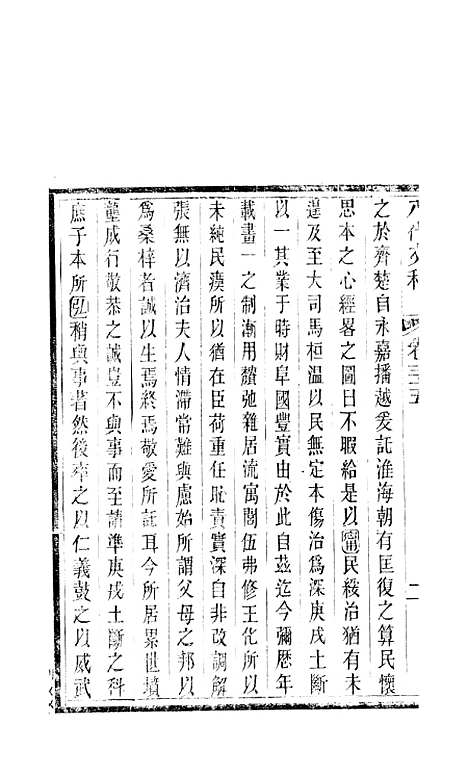 八代文粹 卷三五 二
之於齊楚自永嘉播越爰託淮海朝有匡復之算民懷
思本之心經畧之圖日不暇給是以甯民綏治猶有未
遑及至大司馬桓温以民無定本傷治爲深庚戌土斷
以一其業于時財阜國豐實由於此自茲迄今彌歴年
載畫一之制漸用頽弛雜居流寓閭伍弗修王化所以
未純民瘼所以猶在臣荷重任恥責實深自非改調解
張無以濟治夫人情滯常難與慮始所謂父母之邦以
爲桑梓者誠以生焉終焉敬愛所託耳今所居累世墳
壟成行敬恭之誠豈不與事而至請準庚戌土斷之科
庶子本所弘稍與事著然後率之以仁義鼓之以威武